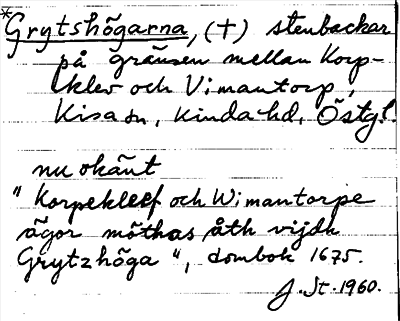 *Grytshögarna, (†) stenbackar
på gränsen mellan Korp-
klev och Vimantorp,
Kisa sn, Kinda hd, Östgl.
nu okänt
"Korpekleef och Wimantorpe
ägor möthas åth vijdh
Grytzhöga", dombok 1675.
J. St. 1960.